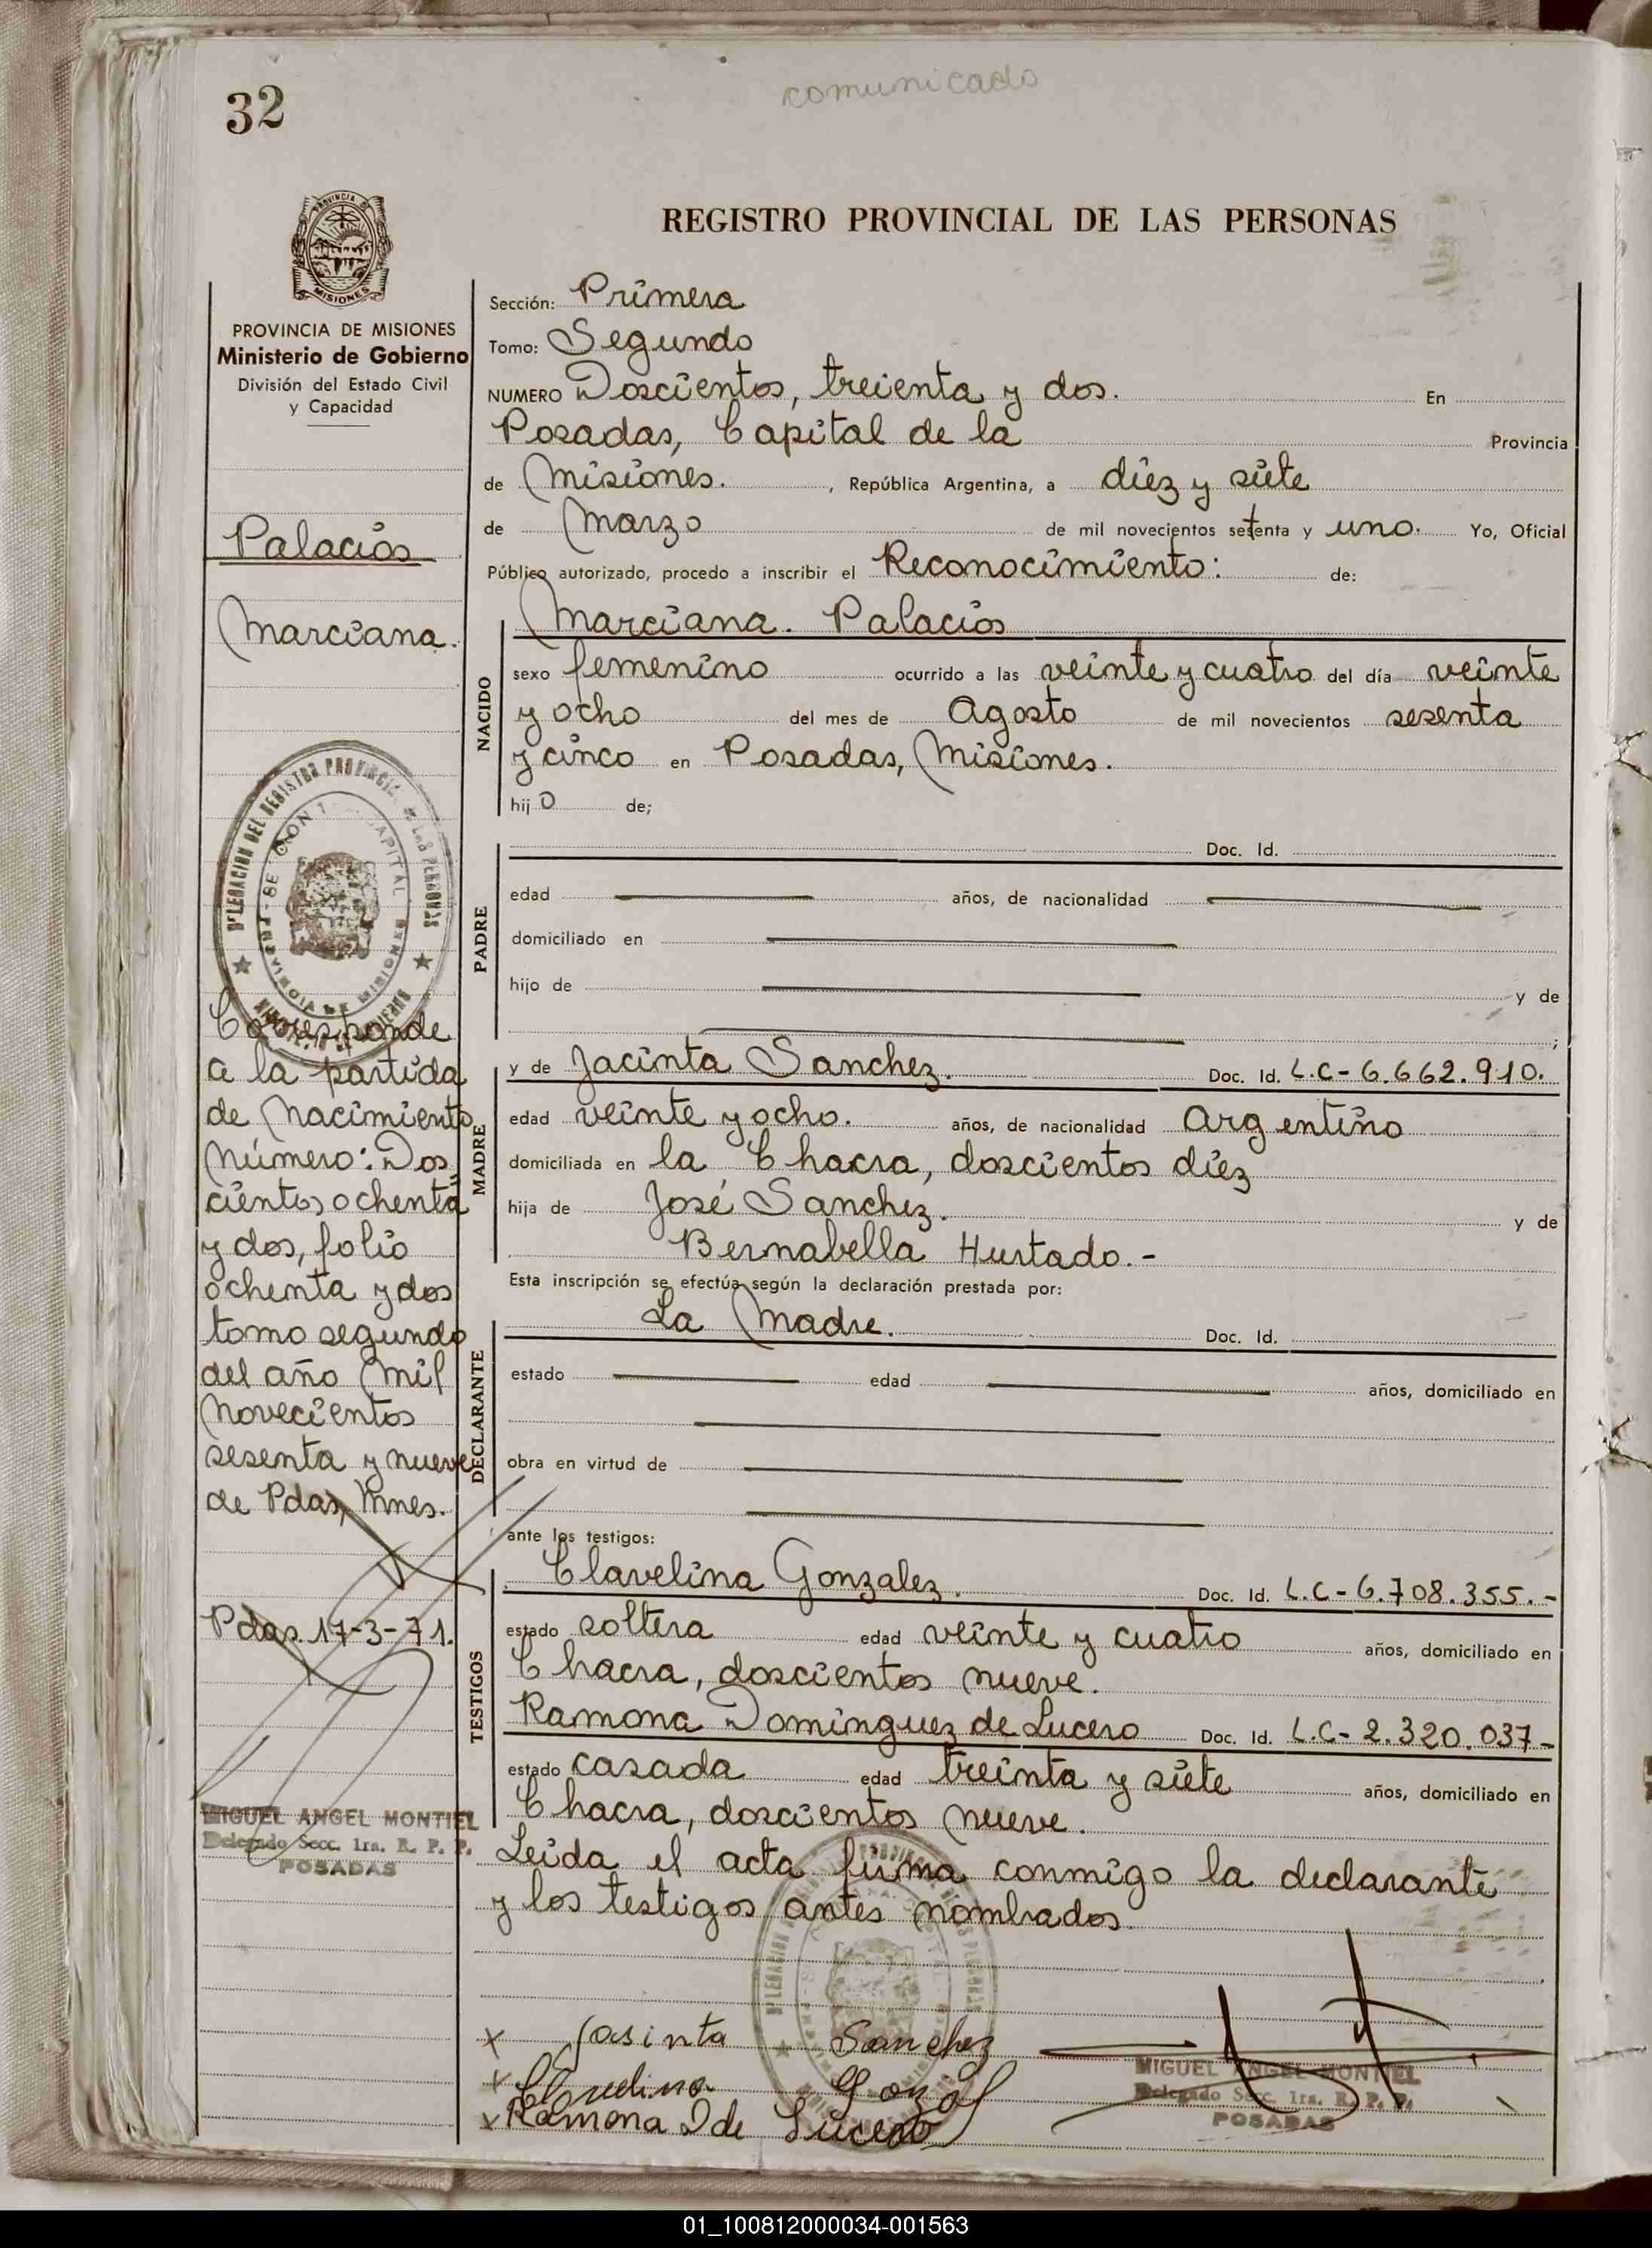 32
comunicado
PROVINCIA DE MISIONES
REGISTRO PROVINCIAL DE LAS PERSONAS
PROVINCIA DE MISIONES
Ministerio de Gobierno
División del Estado Civil
y Capacidad
Palacios
Marciana.
DELEGACION DEL REGISTRO PROVINCIAL DE LAS PERSONAS
CAPITAL
PROVINCIA DE MISIONES
Corresponde
a la partida
de Nacimiento
Número: Dos
cientos ochenta
y dos, folio
ochenta y dos
tomo segundo
del año Mil
Novecientos
sesenta y nueve
de Pdas, Mnes.
Pdas. 17-3-71.
MIGUEL ANGEL MONTIEL
Delegado Secc. 1ra. R. P. P.
POSADAS
Sección: Primera
Tomo: Segundo
NUMERO Doscientos, treienta y dos. En
Posadas, Capital de la Provincia
de Misiones. , República Argentina, a diez y siete
de Marzo de mil novecientos setenta y uno. Yo, Oficial
Público autorizado, procedo a inscribir el Reconocimiento: de:
NACIDO
Marciana. Palacios
sexo femenino ocurrido a las veinte y cuatro del día veinte
y ocho del mes de Agosto de mil novecientos sesenta
y cinco en Posadas, Misiones.
hijo de;
PADRE
Doc. Id.
edad años, de nacionalidad
domiciliado en
hijo de y de
;
MADRE
y de Jacinta Sanchez. Doc. Id. L.C-6.662.910.
edad veinte y ocho. años, de nacionalidad Argentino
domiciliada en la Chacra, doscientos diez
hija de José Sanchez. y de
Bernabella Hurtado.-
Esta inscripción se efectúa según la declaración prestada por:
DECLARANTE
La Madre. Doc. Id.
estado edad años, domiciliado en
obra en virtud de
ante los testigos:
TESTIGOS
Clavelina Gonzalez. Doc. Id. L.C-6.708.355.-
estado soltera edad veinte y cuatro años, domiciliado en
Chacra, doscientos nueve.
Ramona Dominguez de Lucero Doc. Id. L.C-2.320.037-
estado casada edad treinta y siete años, domiciliado en
Chacra, doscientos nueve.
Leida el acta firma conmigo la declarante
y los testigos antes nombrados.
x Jasinta Sanchez
x
x Ramona D de Lucero
MIGUEL ANGEL MONTIEL
Delegado Secc. 1ra. R. P. P.
POSADAS
01_100812000034-001563